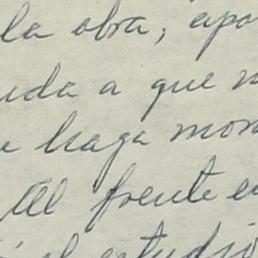 la obra, apo
uda a que
e haga mon
Al frente e
el estudio